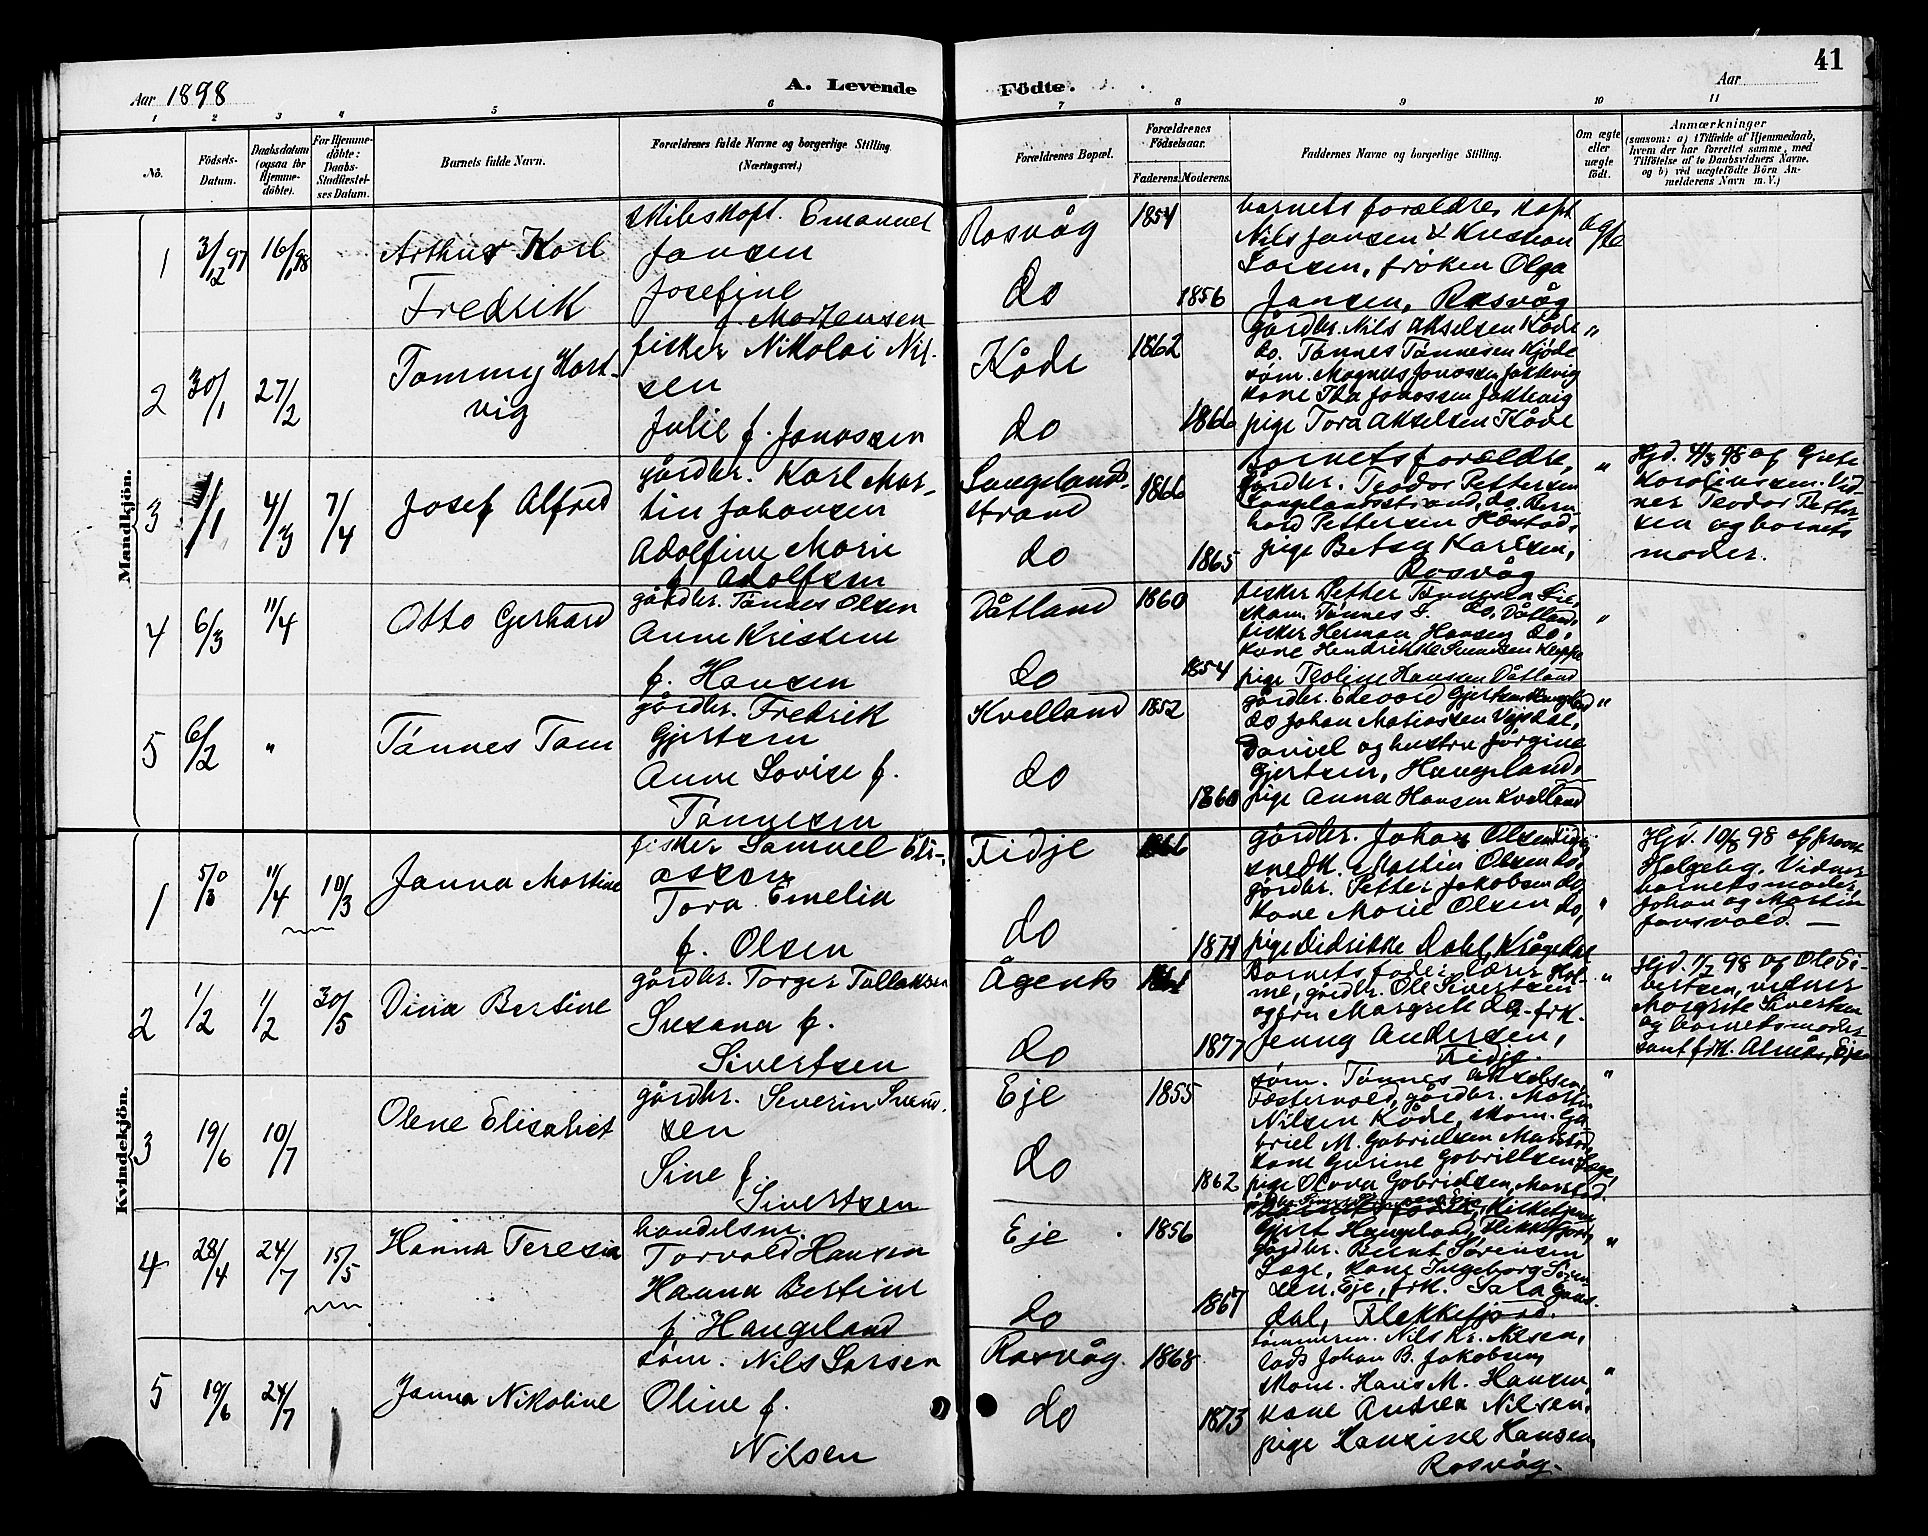 41
Aar 1898
A. Levende
Födte.
Aar
1 2 3 4 5 6 7 8 9 10 11
No.
Födsels-Datum.
Daabsdatum (ogsaa for Hjemme-döbte).
For Hjemme-döbte: Daabs-Stadfæstel-ses Datum.
Barnets fulde Navn.
Forældrenes fulde Navne og borgerlige Stilling.
(Næringsvei.)
Forældrenes Bopæl.
Forældrenes Födselsaar.
Faderens. Moderens.
Faddernes Navne og borgerlige Stilling.
Om ægte eller uægte födt.
Anmærkninger
(saasom: a) i Tilfælde af Hjemmedaab, hvem der har forrettet samme, med Tilföielse af to Daabsvidners Navne. og b) ved uægtefödte Börn Anmelderens Navn m. V.)
Mandkjön.
1 3/12 97 16/1 98 Arthur Karl
Fredrik
skibskapt. Emanuel
Jansen
Josefine
f. Mortensen
Rosvåg 1854
do 1856
barnets forældre, kapt.
Nils Jansen & Kristian
Larsen, frøken Olga
Jansen, Rasvåg
ægte
2 30/1 27/2 Tommy Hart-
vig
fisker Nikolai Nil-
sen
Julie f. Jonassen
Kåde 1862
do 1866
gårdbr. Nils Akselsen Kåde
do. Tønnes Tønnesen Kjøde
søm. Magnus Jonassen
kone Ida Jonassen
pige Tora Akselsen Kåde
"
3 1/1 4/3 7/4 Josef Alfred
gårdbr. Karl Mar-
tin Johansen
Adolfine Marie
f. Adolfsen
Laugelands-
strand 1866
do 1865
Barnets forældre,
gårdbr. Teodor Pettersen
Laugelandsstrand, do. Bern-
hard Pettersen
pige Betsy Karlsen,
Rosvåg
"
Hjd. 4/3 98 af Grete
Karolinssen. Vid-
ner Teodor Petter-
sen og barnets
moder.
4 6/3 11/4 Otto Gerhard
gårdbr. Tønnes Olsen
Anne Kristine
f. Hansen
Dåtland 1860
do 1854
fisker Petter Tønnesen
skom. Tønnes T. do, Dåtland,
fisker Herman Hansen do,
kone Hendrikke
pige Teoline Hansen Dåtland
"
5 6/2 " Tønnes Tom
gårdbr. Fredrik
Gjertsen
Anne Lovise f.
Tønnesen
Kvelland 1852
do 1860
gårdbr. Edevard Gjertsen Haugeland
do Johan Matiassen
Daniel og hustru Jørgine
Gjertsen, Haugeland,
pige Anna Hansen Kvelland
"
Kvindekjön.
1 5/3 11/4 10/3 Janna Martine
fisker Samuel Eli-
assen
Tora Emelia
f. Olsen
Fidje 1866
do 1871
gårdbr. Johan Olsen Fidje
snedk. Martin Olsen do,
gårdbr. Petter Jakobsen do
kone Marie Olsen do,
pige Didrikke Dahl, Krågedal
"
Hjd. 10/3 98 af frøken
Helgeby. Vidner
barnets moder,
Johan og Martin
2 1/2 1/2 30/5 Dina Bertine
gårdbr. Torger Tallaksen
Susana f.
Sivertsen
Ågents
do 1877
Barnets fader, lærer Hol-
me, gårdbr. Ole Sivertsen
og fru Margrete do. frk.
Jenny Andersen,
Fidje.
"
Hjd. 1/2 98 af Ole Si-
vertsen, vidner
Margrite Sivertsen
og barnets moder
samt frk.
3 19/6 10/7 Olene Elisabet
gårdbr. Severin Svend-
sen
Sine f.
Sivertsen
Eje 1855
do 1862
søm. Tønnes Akselsen,
gårdbr. Martin
Nilsen Kåde, skom. Ga-
briel M. Gabrielsen
kone Gurine Gabrielsen
pige Olava Gabrielsen
"
4 28/4 24/7 15/5 Hanna Teresia
handelsm.
Torvald Hansen
Hanna Bertine
f. Haugeland
Eje 1856
do 1867
Gjert Haugeland, Flekkefjord,
gårdbr. Bernt Sørensen
Lege, kone Ingeborg Søren-
sen, Eje, frk. Sara
dal, Flekkefjord.
"
5 19/6 24/7 Janna Nikoline
søm. Nils Larsen
Oline f.
Nilsen
Rasvåg. 1868
do 1873
tømmerm. Nils Kr. Nilsen,
lods Johan B. Jakobsen,
skom. Hans M. Hansen,
kone Andrea Nilsen,
pige Hansine Hansen,
Rasvåg.
"